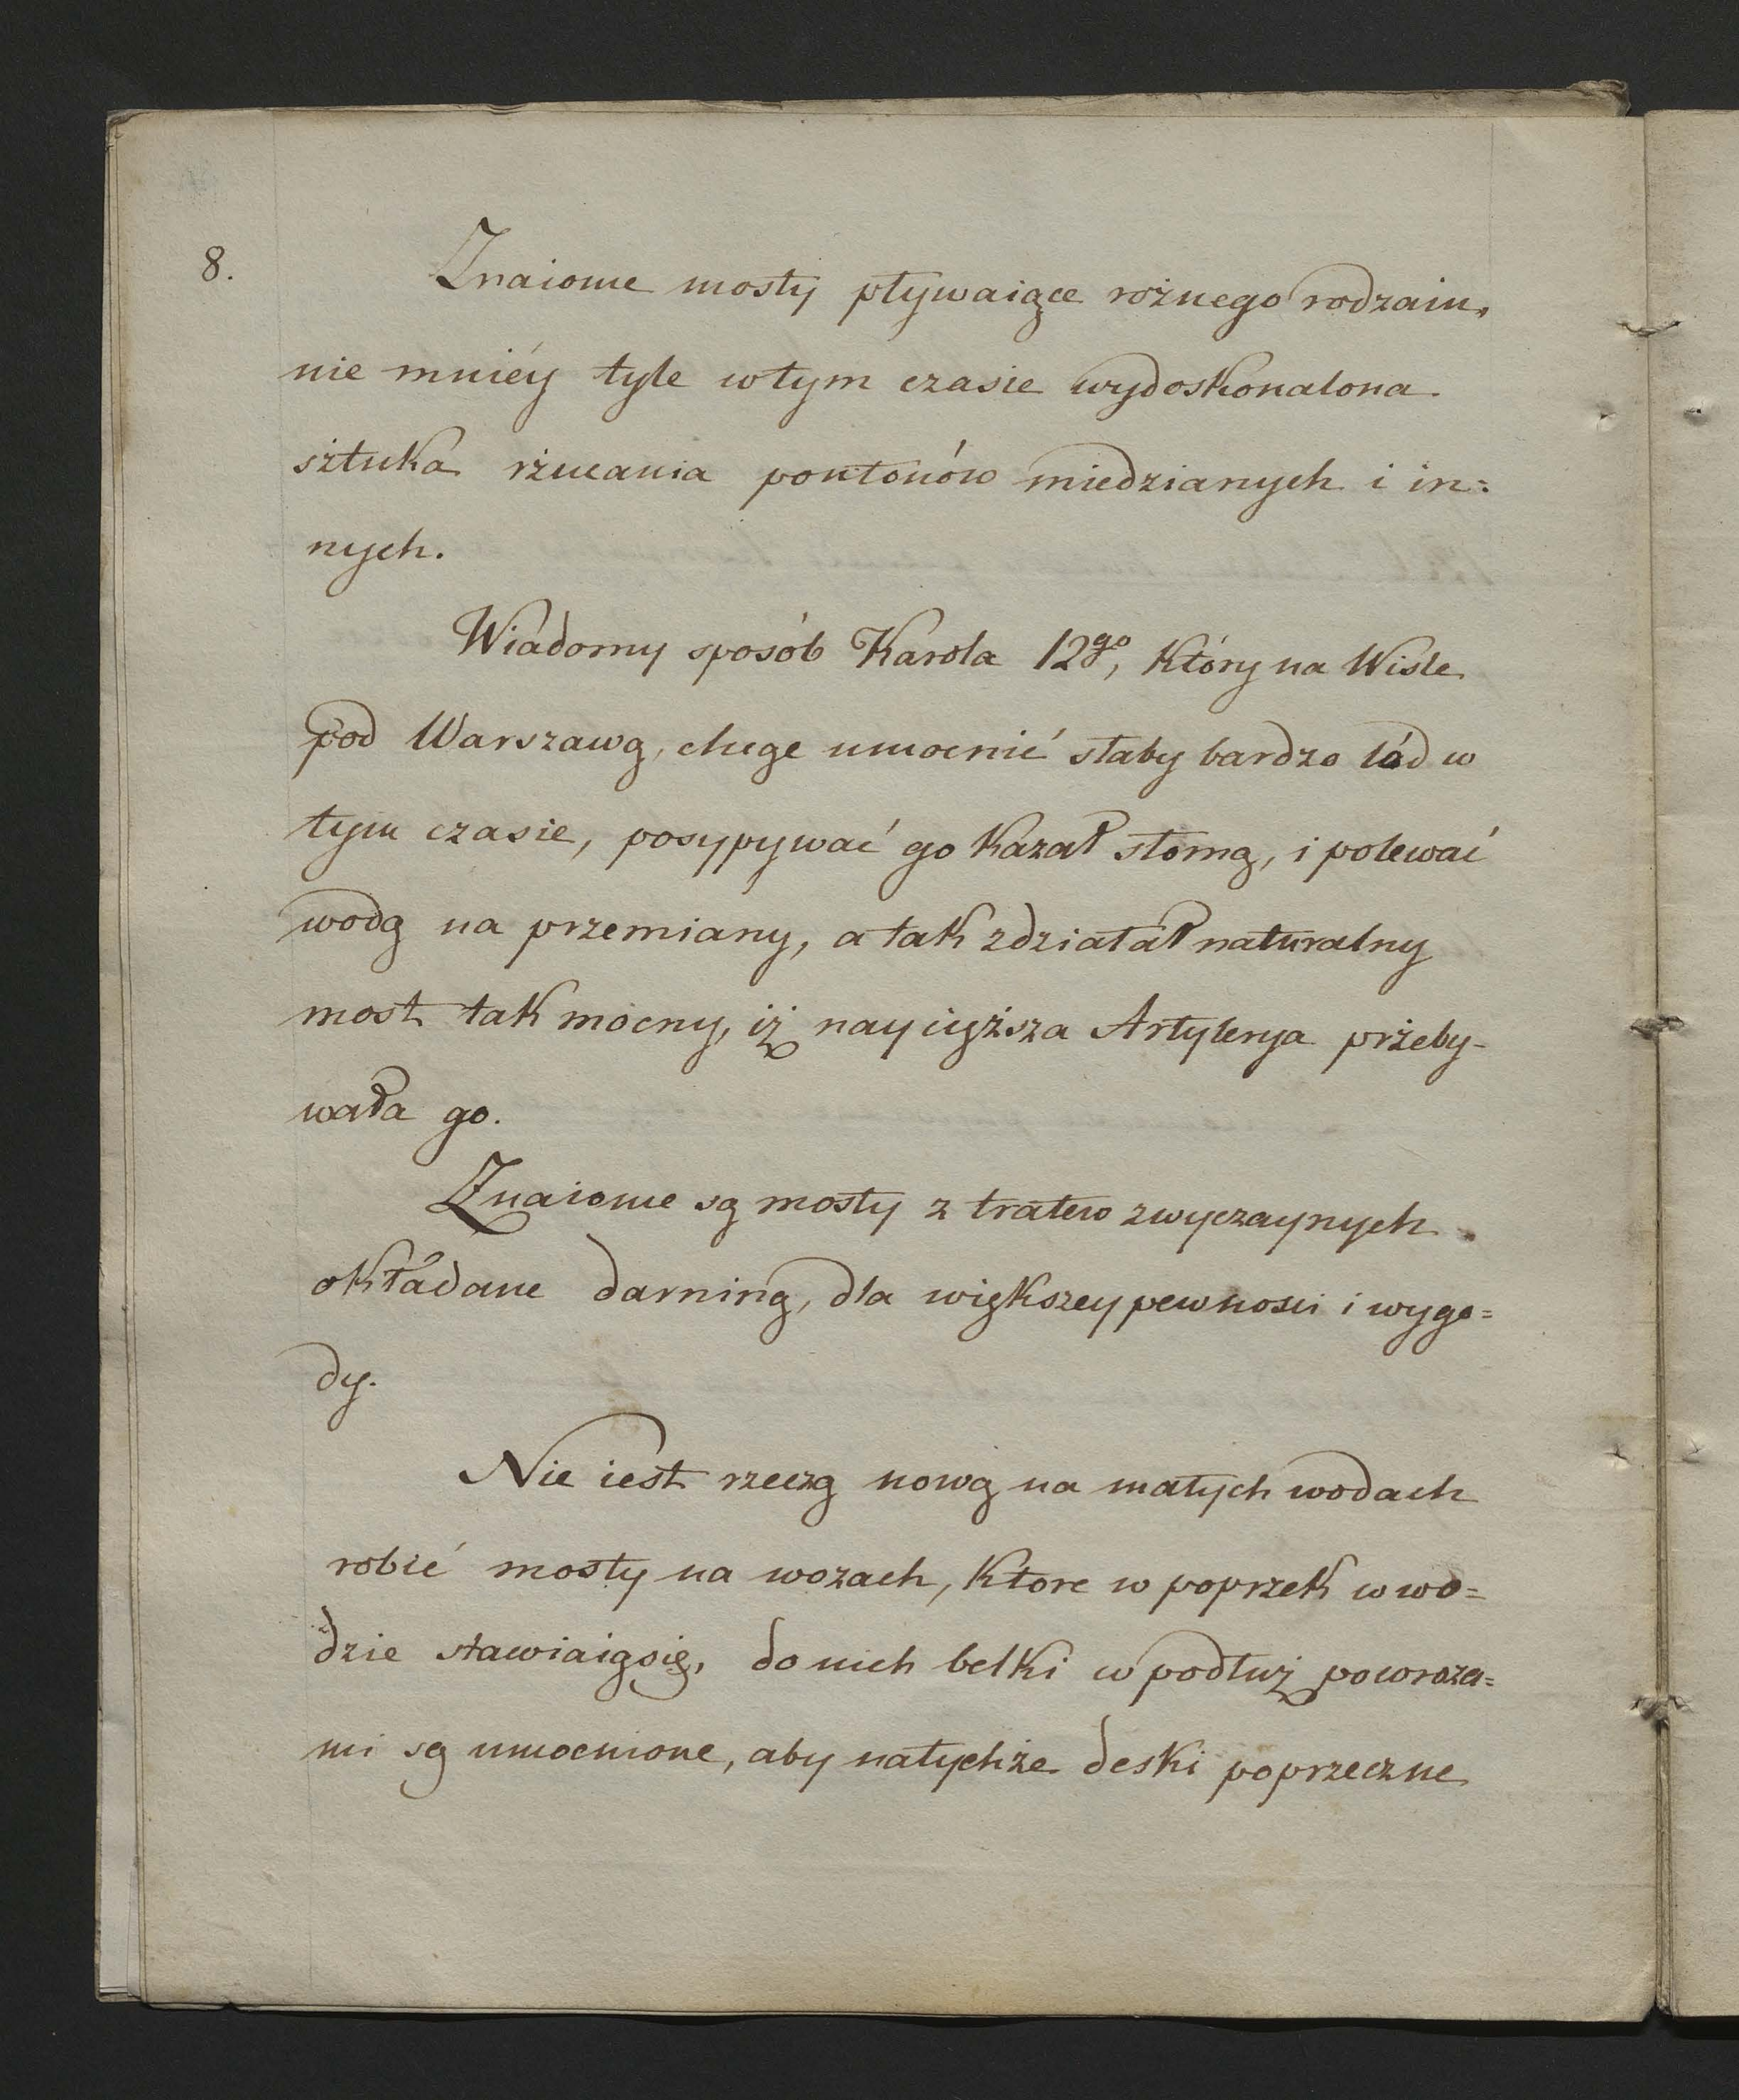 8.
Znaiome mosty pływaiące rożnego rodzaiu,
nie mniéy tyle wtym czasie wydoskonalona
sztuka rżucania pontonów miedzianych i in=
nych.
Wiadomy sposób Karola 12go, który na Wisle
pod Warszawą, chcąc umocnić słaby bardzo lód w
tym czasie, posypywać go kazał słomą, i polewać
wodą na przemiany, a tak zdziałał naturalny
most tak mocny, iż naycięższa Artylerya przeby-
wała go.
Znaiome są mosty z tratew zwyczaynych
okładane darniną, dla większey pewnosci i wygo=
dy.
Nie iest rzeczą nową na małych wodach
robić mosty na wozach, ktore w poprzek w wo=
dzie stawiaiąsię, do nich belki w podłuż poworoza=
mi są umocnione, aby natychże deski poprzeczne